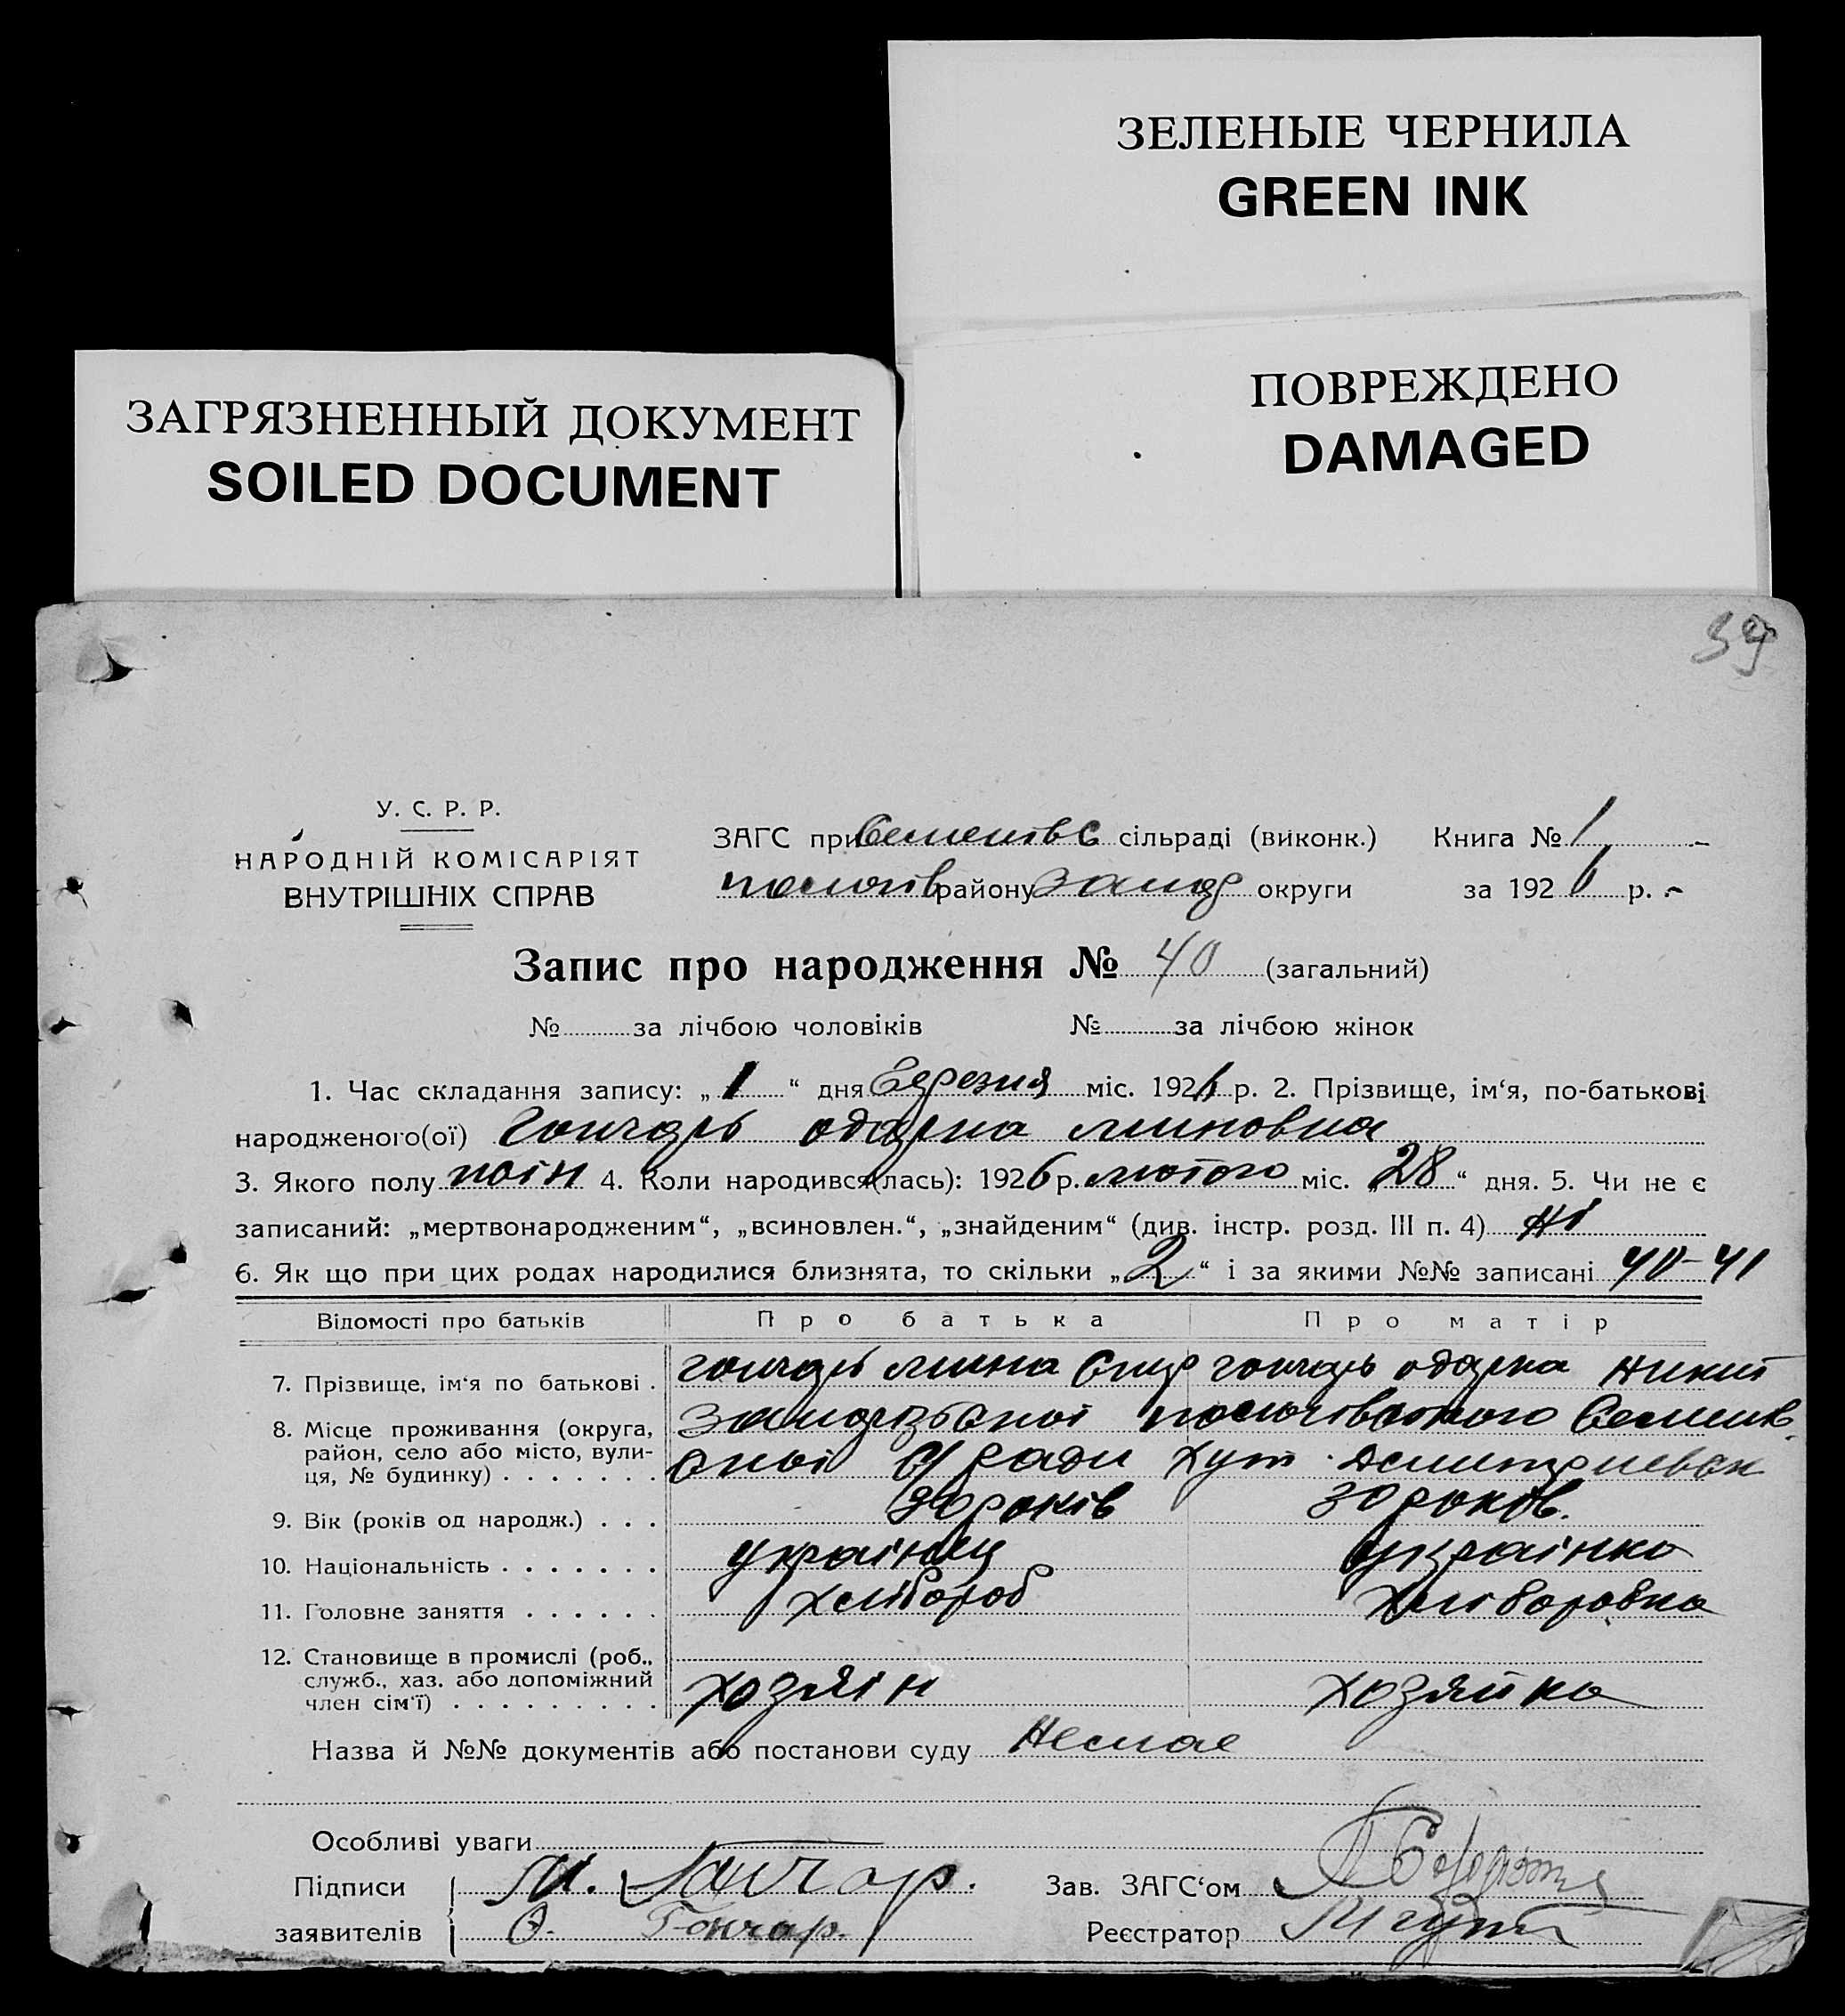 ЗЕЛЕНЫЕ ЧЕРНИЛА
GREEN INK
ПОВРЕЖДЕНО
DAMAGED
ЗАГРЯЗНЕННЫЙ ДОКУМЕНТ
SOILED DOCUMENT
39
У. С. Р. Р.
НАРОДНІЙ КОМІСАРІЯТ
ВНУТРІШНІХ СПРАВ
ЗАГС при сільраді (виконк.) Книга № 1
пологів району Запор округи за 1926 р.
Запис про народження № 40 (загальний)
№ за лічбою чоловіків № за лічбою жінок
1. Час складання запису: „1“ дня Березня міс. 1926 р. 2. Прізвище, ім‘я, по-батькові
народженого(ої) Гончарь одарка миновна
3. Якого полу 4. Коли народився(лась): 1926 р. лютого міс. „28“ дня. 5. Чи не є
записаний: „мертвонародженим“, „всиновлен.“, „знайденим“ (див. інстр. розд. III п. 4) Ні
6. Як що при цих родах народилися близнята, то скільки „2“ і за якими №№ записані 40-41
Відомості про батьків Про батька Про матір
7. Прізвище, ім‘я по батькові . гончарь мина Спир гончарь одарка Никит
8. Місце проживання (округа, район, село або місто, вулиця, № будинку) . . . . . . . Запорізької пологівського
ської с/ ради хут.
9. Вік (років од народж.) . . . років 30 років.
10. Національність . . . . . . . українець українка
11. Головне заняття . . . . . . хлібороб хліборобка
12. Становище в промислі (роб., служб., хаз. або допоміжний член сім‘ї) . . . . . . . . . хозяін хозяйка
Назва й №№ документів або постанови суду Немае
Особливі уваги
Підписи М. Гончар. Зав. ЗАГС‘ом
заявителів О. Гончар. Реєстратор